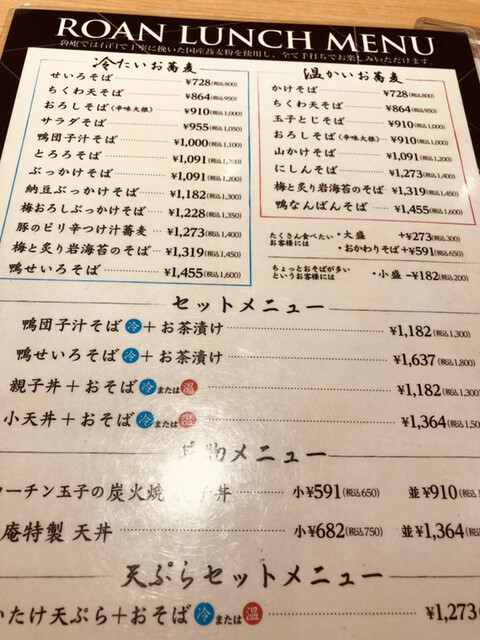 ROAN LUNCH MENU
魯庵では石臼で丁寧に挽いた国産蕎麦粉を使用し、全て手打ちでお楽しみいただけます。
冷たいお蕎麦
せいろそば ¥728(税込800)
ちくわ天そば ¥864(税込950)
おろしそば(辛味大根) ¥910(税込1,000)
サラダそば ¥955(税込1,050)
鴨団子汁そば ¥1,000(税込1,100)
とろろそば ¥1,091(税込1,200)
ぶっかけそば ¥1,091(税込1,200)
納豆ぶっかけそば ¥1,182(税込1,300)
梅おろしぶっかけそば ¥1,228(税込1,350)
豚のピリ辛つけ汁蕎麦 ¥1,273(税込1,400)
梅と炙り岩海苔のそば ¥1,319(税込1,450)
鴨せいろそば ¥1,455(税込1,600)
温かいお蕎麦
かけそば ¥728(税込800)
ちくわ天そば ¥864(税込950)
玉子とじそば ¥910(税込1,000)
おろしそば(辛味大根) ¥910(税込1,000)
山かけそば ¥1,091(税込1,200)
にしんそば ¥1,273(税込1,400)
梅と炙り岩海苔のそば ¥1,319(税込1,450)
鴨なんばんそば ¥1,455(税込1,600)
たくさん食べたいお客様には
・大盛 +¥273(税込300)
・おかわりそば +¥591(税込650)
ちょっとおそばが多いというお客様には
・小盛 -¥182(税込200)
セットメニュー
鴨団子汁そば 冷 + お茶漬け ¥1,182(税込1,300)
鴨せいろそば 冷 + お茶漬け ¥1,637(税込1,800)
親子丼 + おそば 冷 または 温 ¥1,182(税込1,300)
小天丼 + おそば 冷 または 温 ¥1,364(税込1,50
物メニュー
ーチン玉子の炭火焼 子丼 小¥591(税込650) 並¥910(税込1,
庵特製 天丼 小¥682(税込750) 並¥1,364(税込
天ぷらセットメニュー
いたけ天ぷら+おそば 冷 または 温 ¥1,273(税